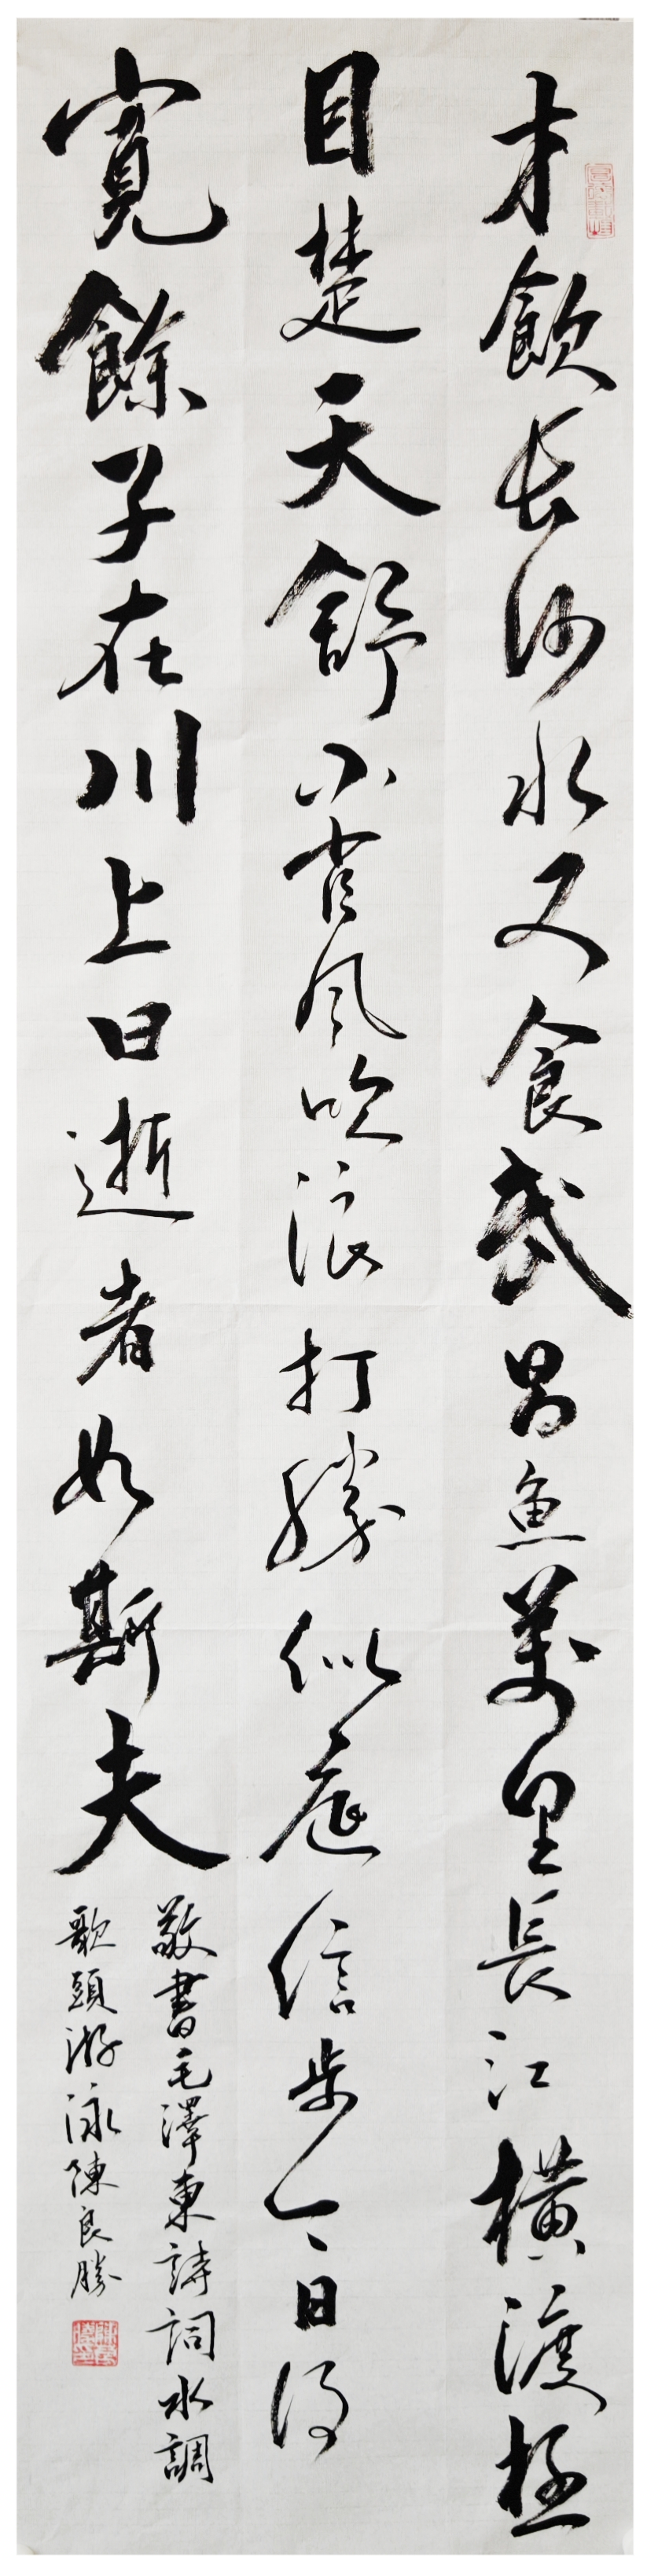 才飲长沙水又食武昌鱼萬里長江橫渡極
目楚天舒不管风吹浪打勝似庭信步今日得
寬餘子在川上曰逝者如斯夫
敬書毛澤東詩詞水調
歌頭游泳陳良勝